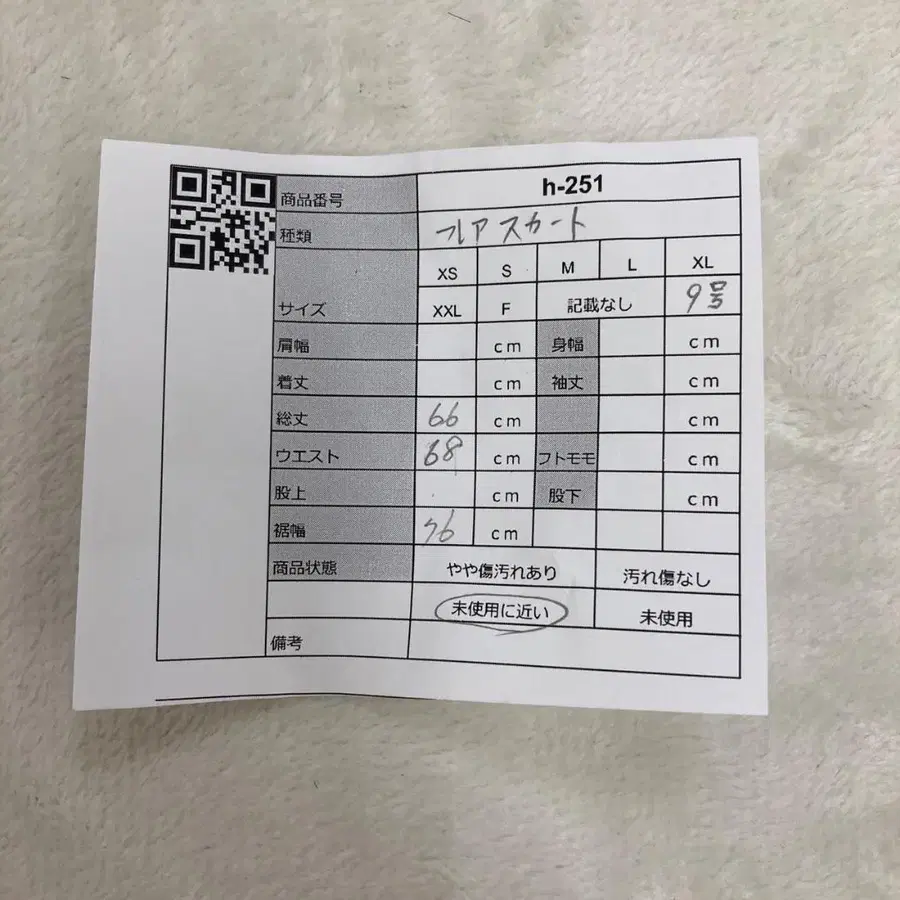 商品番号 h-251
種類 フレアスカート
XS S M L XL
サイズ XXL F 記載なし 9号
肩幅 cm 身幅 cm
着丈 cm 袖丈 cm
総丈 66 cm cm
ウエスト 68 cm フトモモ cm
股上 cm 股下 cm
裾幅 76 cm
商品状態 やや傷汚れあり 汚れ傷なし
未使用に近い 未使用
備考